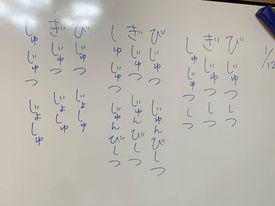 1/12
びじゅつしつ
ぎじゅつしつ
しゅじゅつしつ
びじゅつ じゅんびしつ
ぎじゅつ じゅんびしつ
しゅじゅつ じゅんびしつ
びじゅつ じょしゅ
ぎじゅつ じょしゅ
しゅじゅつ じょしゅ